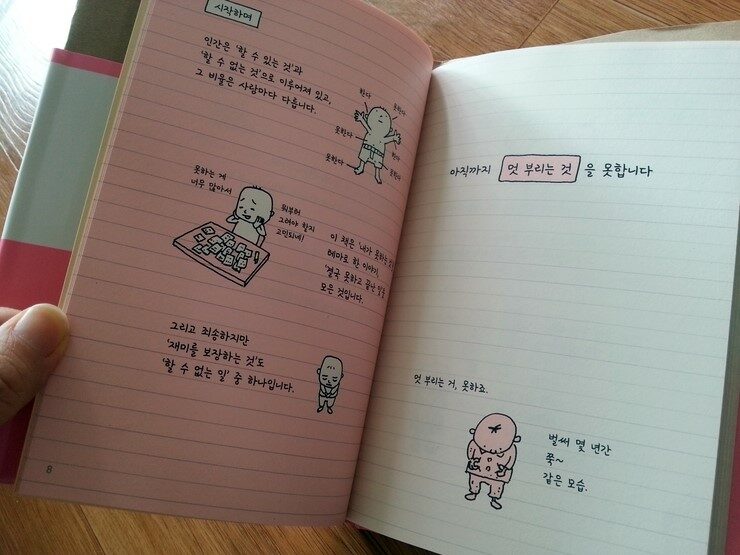 시작하며
인간은 '할 수 있는 것'과
'할 수 없는 것'으로 이루어져 있고,
그 비율은 사람마다 다릅니다.
한다
못한다
못한다
한다
못한다
못한다
못하는 게
너무 많아서
뭐부터
그려야 할지
고민되네!
이 책은 '내가 못하는
테마로 한 이야기,
'결국 못하고 끝난 일'을
모은 것입니다.
그리고 죄송하지만
'재미를 보장하는 것'도
'할 수 없는 일' 중 하나입니다.
8
아직까지 멋 부리는 것 을 못합니다
멋 부리는 거, 못하죠.
벌써 몇 년간
쭉~
같은 모습.